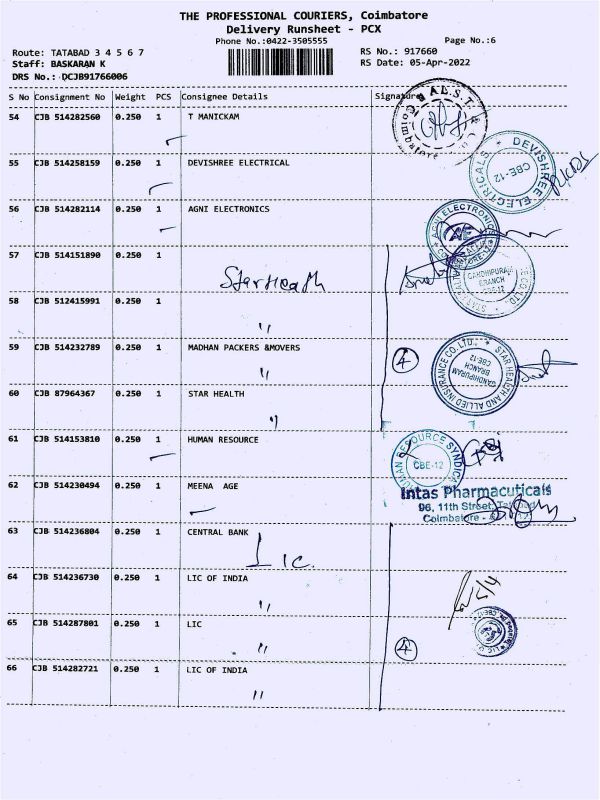 THE PROFESSIONAL COURIERS, Coimbatore
Delivery Runsheet - PCX
Phone No.:0422-3505555
Page No.:6
Route: TATABAD 3 4 5 6 7
RS No.: 917660
Staff: BASKARAN K
RS Date: 05-Apr-2022
DRS No.: DCJB91766006
S No Consignment No Weight PCS Consignee Details Signature
54 CJB 514282560 0.250 1 T MANICKAM
55 CJB 514258159 0.250 1 DEVISHREE ELECTRICAL
DEVISHREE ELECTRICALS
CBE-12
56 CJB 514282114 0.250 1 AGNI ELECTRONICS
AGNI ELECTRONICS
AF
57 CJB 514151890 0.250 1
Star Heath
GANDHIPURAM
BRANCH
58 CJB 512415991 0.250 1
"
59 CJB 514232789 0.250 1 MADHAN PACKERS &MOVERS
"
4
STAR HEALTH AND ALLIED INSURANCE CO. LTD.,
GANDHIPURAM
BRANCH
CBE-12
60 CJB 87964367 0.250 1 STAR HEALTH
"
61 CJB 514153810 0.250 1 HUMAN RESOURCE
HUMAN RESOURCE SYNDICA
CBE-12
62 CJB 514230494 0.250 1 MEENA AGE
Intas Pharmacuticals
96, 11th Street,
Coimbatore -
63 CJB 514236804 0.250 1 CENTRAL BANK
Lic.
64 CJB 514236730 0.250 1 LIC OF INDIA
"
65 CJB 514287801 0.250 1 LIC
"
4
66 CJB 514282721 0.250 1 LIC OF INDIA
"